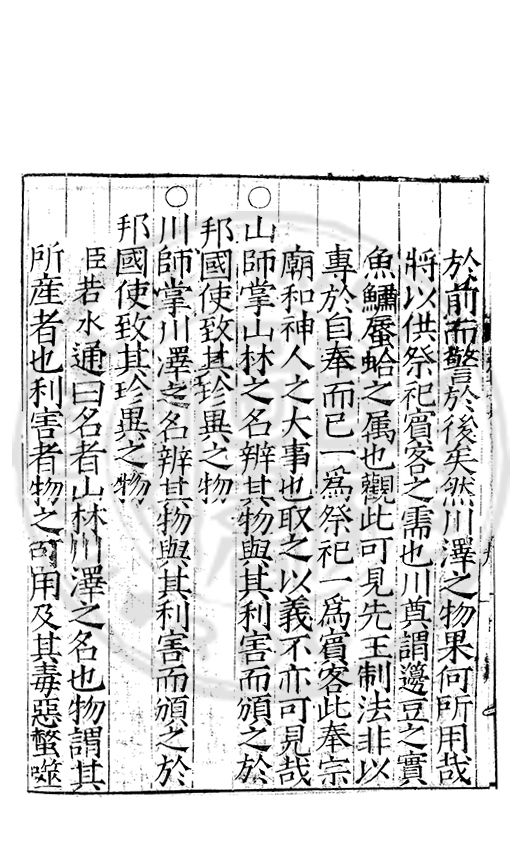 於前而警於後矣然川澤之物果何所用哉
將以供祭祀賓客之需也川奠謂籩豆之實
魚鱐蜃蛤之属也觀此可見先王制法非以
專於自奉而已一為祭祀一為賓客此奉宗
廟和神人之大事也取之以義不亦可見哉
○山師掌山林之名辨其物與其利害而頒之於
邦國使致其珍異之物
○川師掌川澤之名辨其物與其利害而頒之於
邦國使致其珍異之物
臣若水通曰名者山林川澤之名也物謂其
所産者也利害者物之可用及其毒惡螫噬